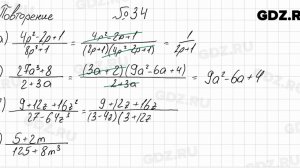 Повторение №34 GDZ.RU
а) (4p² - 2p + 1)/(8p³ + 1) = (4p² - 2p + 1)/((2p+1)(4p² - 2p + 1)) = 1/(2p+1)
(27a³ + 8)/(2 + 3a) = ((3a + 2)(9a² - 6a + 4))/(2 + 3a) = 9a² - 6a + 4
(9 + 12z + 16z²)/(27 - 64z³) = (9 + 12z + 16z²)/((3 - 4z)(3 + 12z
(5 + 2m)/(125 + 8m³)
GDZ.RU